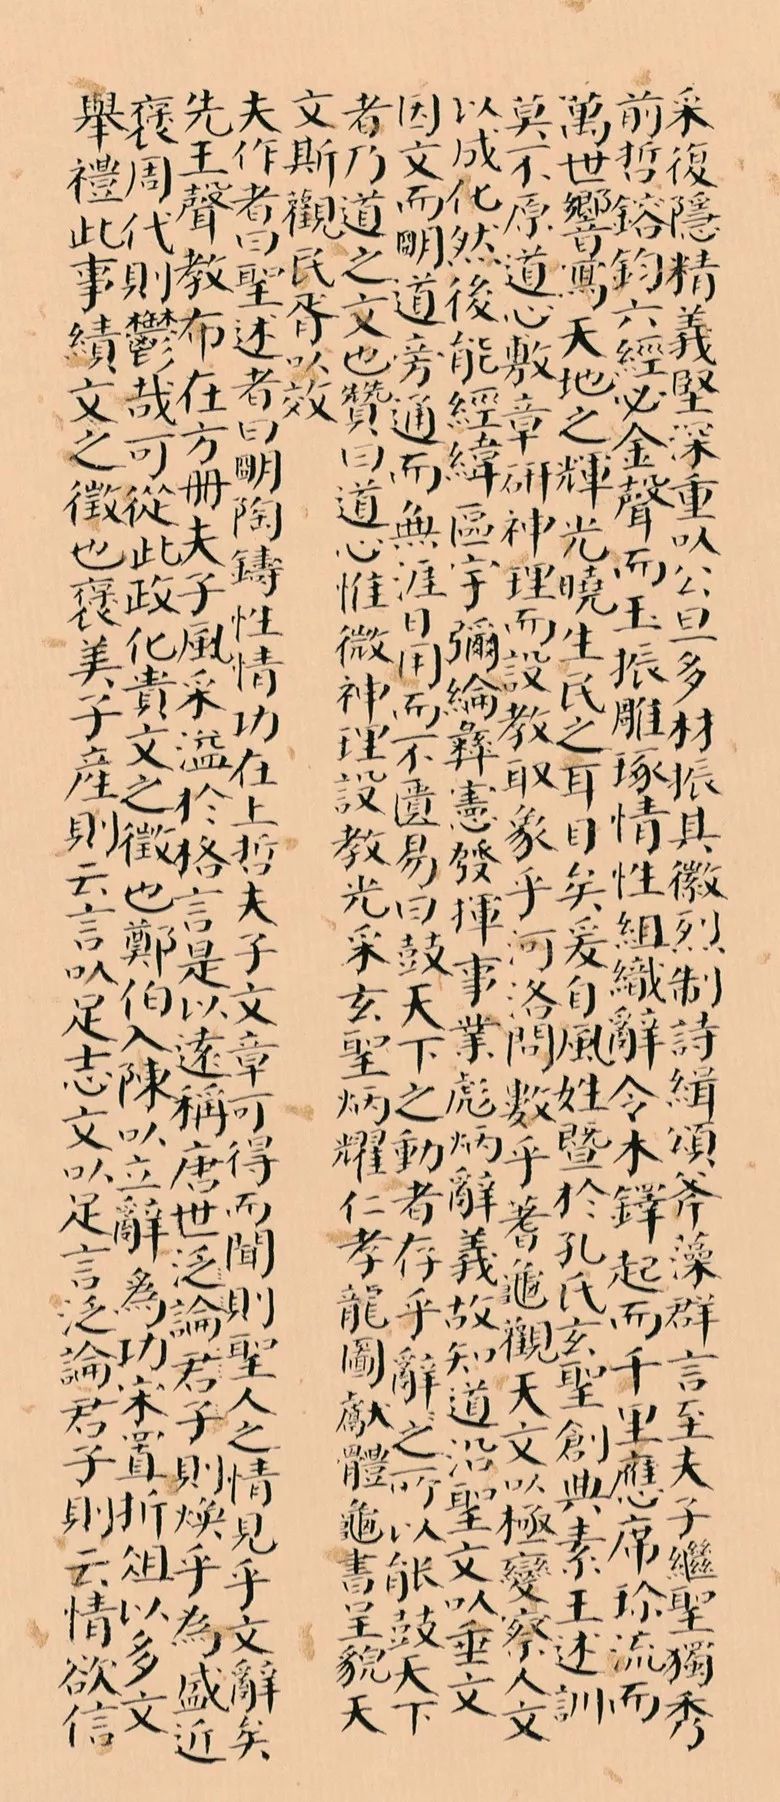 采復隱精義堅深重以公旦多材振其徽烈制詩緝頌斧藻群言至夫子繼聖獨秀
前哲鎔鈞六經必金聲而玉振雕琢情性組織辭令木鐸起而千里應席珍流而
萬世響寫天地之輝光曉生民之耳目矣爰自風姓暨於孔氏玄聖創典素王述訓
莫不原道心敷章研神理而設教取象乎河洛問數乎蓍龜觀天文以極變察人文
以成化然後能經緯區宇彌綸彝憲發揮事業彪炳辭義故知道沿聖文以垂文
因文而明道旁通而無涯日用而不匱易曰鼓天下之動者存乎辭之所以能鼓天下
者乃道之文也贊曰道心惟微神理設教光采玄聖炳耀仁孝龍圖獻體龜書呈貌天
文斯觀民胥以效
夫作者曰聖述者曰明陶鑄性情功在上哲夫子文章可得而聞則聖人之情見乎文辭矣
先王聲教布在方冊夫子風采溢於格言是以遠稱唐世泛論君子則煥乎為盛近
褒周代則鬱哉可從此政化貴文之徵也鄭伯入陳以立辭為功宋置折俎以多文
舉禮此事績文之徵也褒美子產則云言以足志文以足言泛論君子則云情欲信